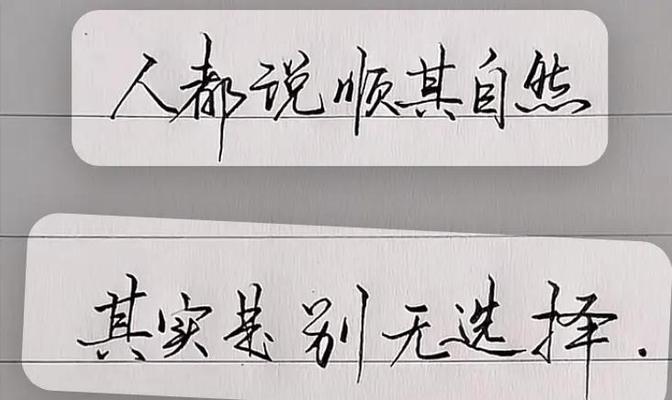 人都说顺其自然
其实是别无选择.